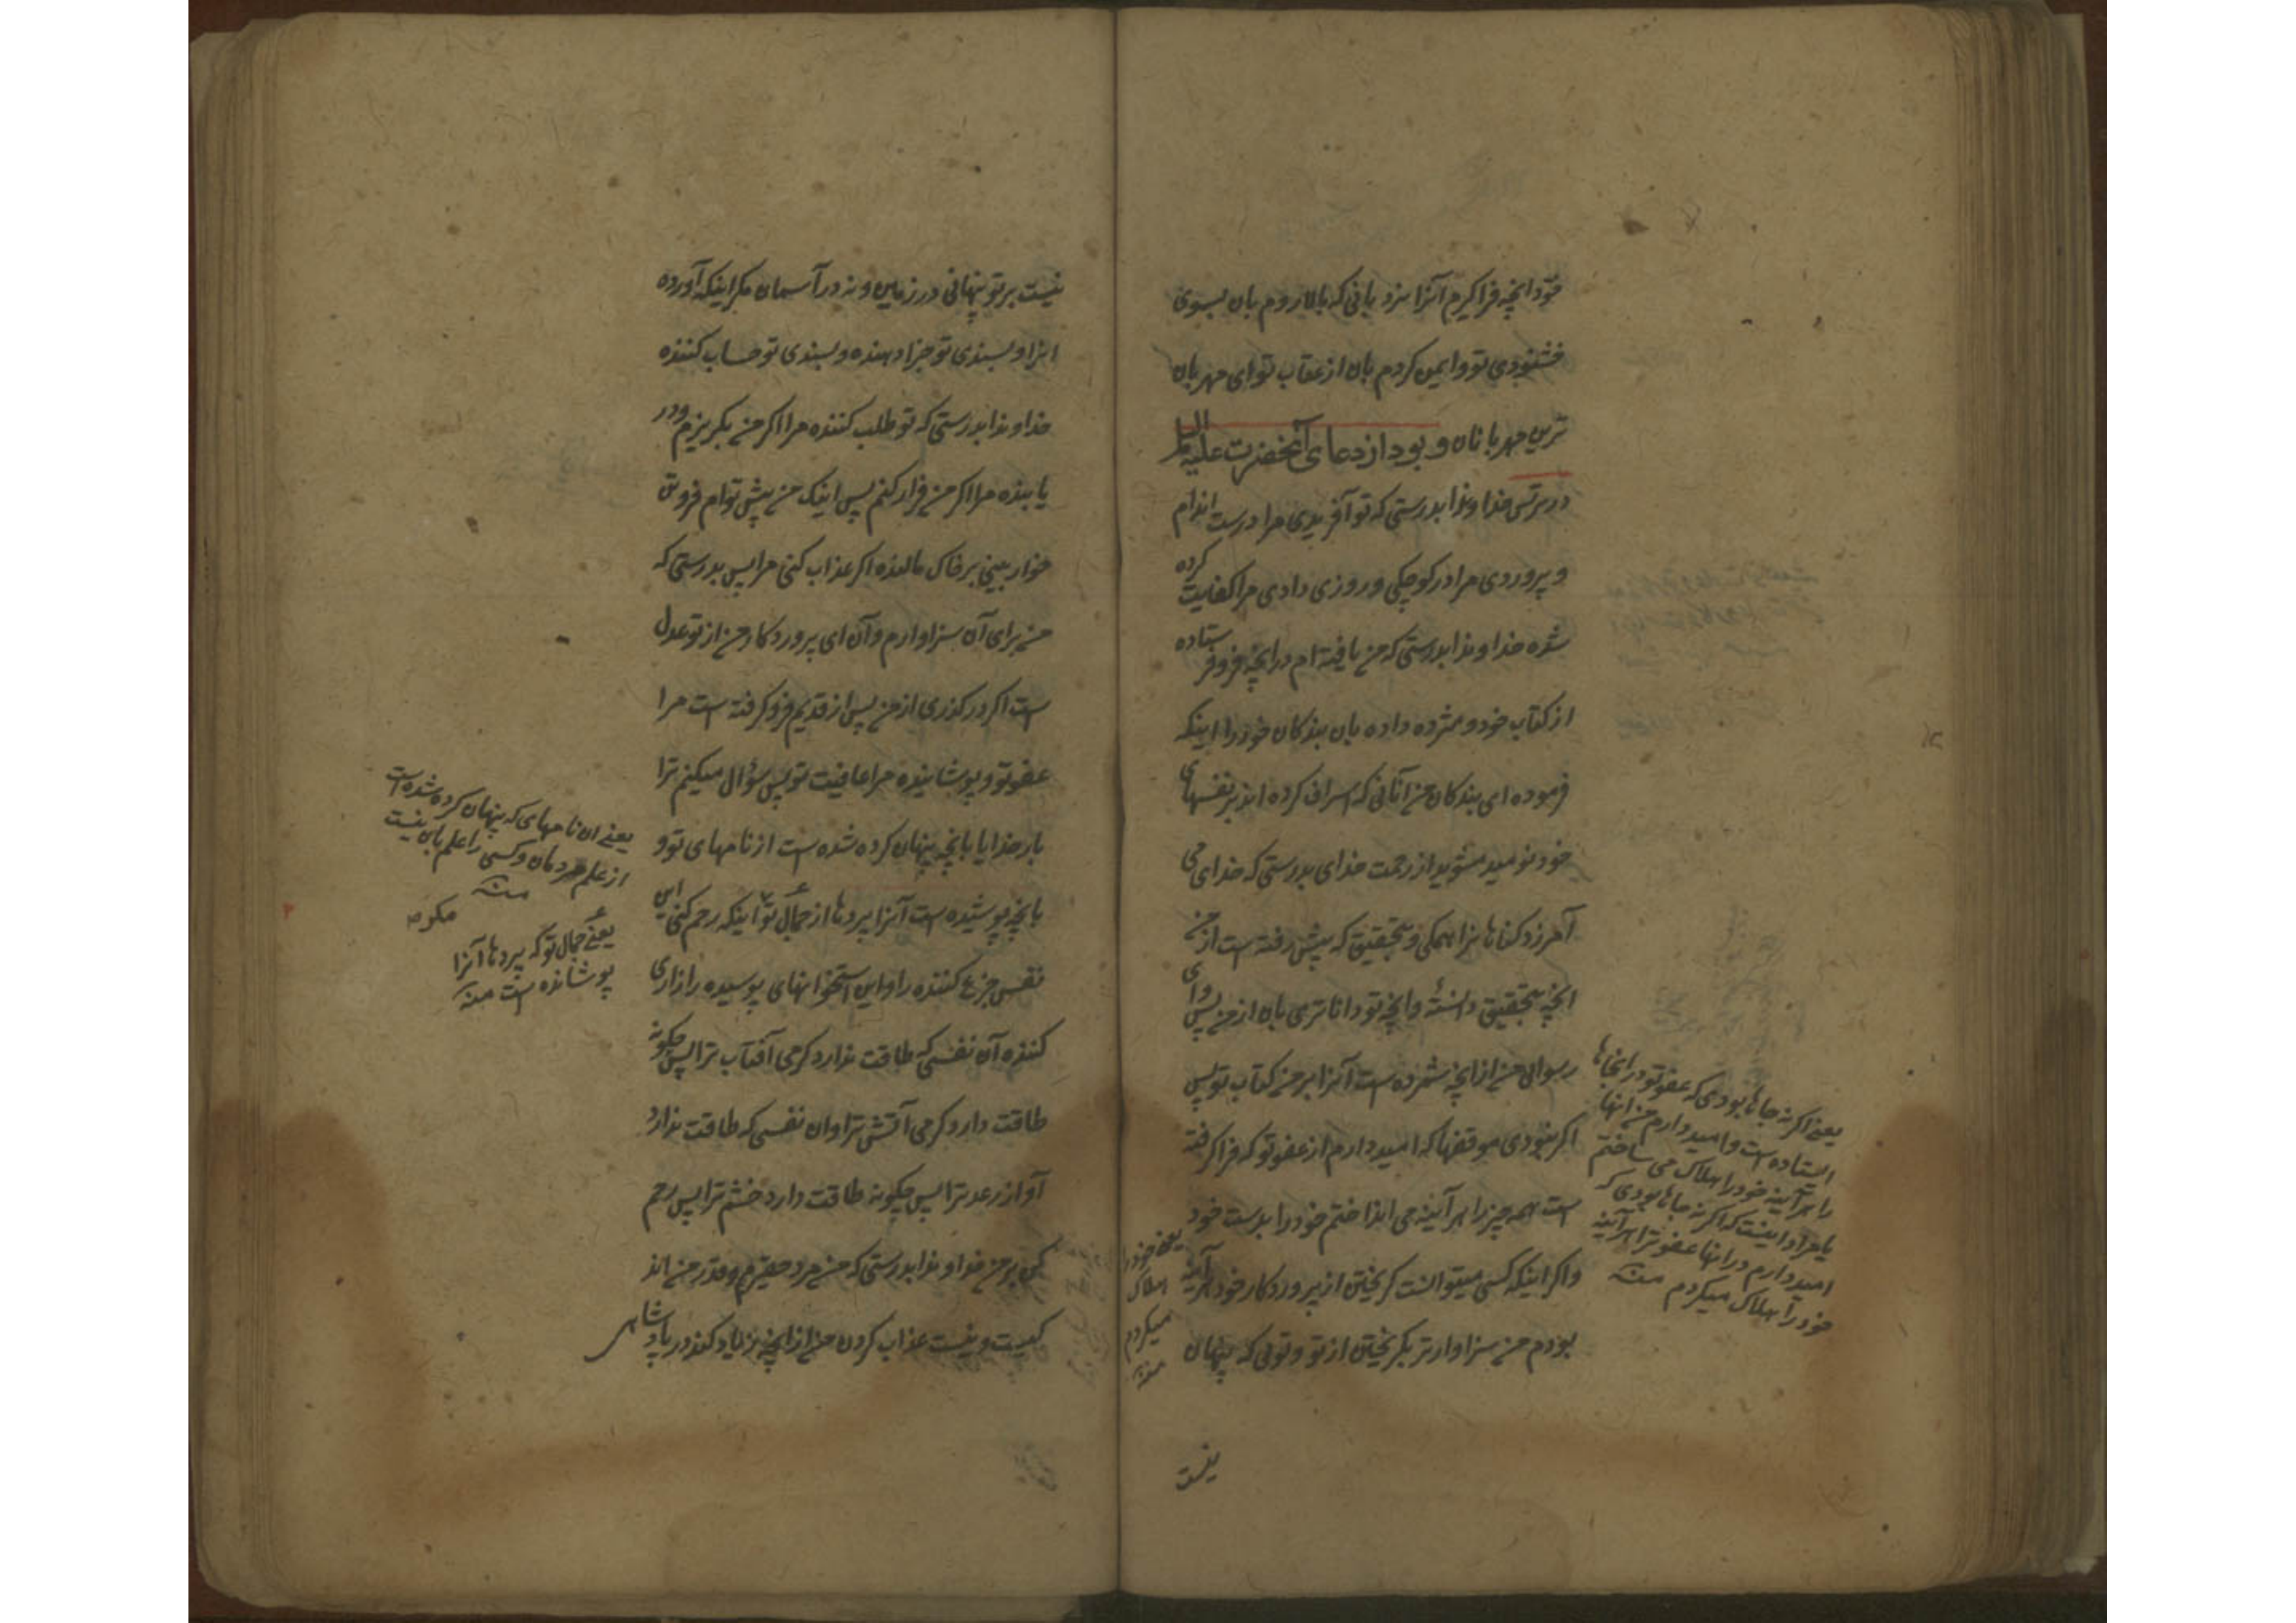 خود انچه فراکیرم آنرا نزد بانی که بالا روم بان بسوی
خشنودی تو و ایمن کردم بان از عقاب تو ای مهربان
ترین مهربانان و بود از دعای آنحضرت علیه السلام
در ترس خداوندا بدرستی که تو آفریدی مرا درست اندام
و پروردی مرا در کوچکی و روزی دادی مرا کفایت کرده
شده خداوندا بدرستی که من یافته ام در انچه فرو فرستاده
از کتاب خود و مژده داده بان بندکان خود را اینکه
فرموده ای بندکان من آنانی که اسراف کرده اند بر نفسهای
خود نومید مشوید از رحمت خدای بدرستی که خدای می
آمرزد کناهانرا همکی و بتحقیق که پیش رفته است از من
انچه بتحقیق دانستهٔ و انچه تو داناتری بان از من پس وای
رسوای من از انچه شمرده است آنرا بر من کتاب تو پس
اکر نبودی موقفها که امید دارم از عفو تو که فرا کرفته
است همه چیز را هر آینه می انداختم خود را بدست خود
و اکر اینکه کسی میتوانست کریختن از پروردکار خود هر آینه
بودم من سزاوارتر بکریختن از تو و توئی که پنهان
یعنی اکر نه جاها بودی که عفو تو در انجاها
ایستاده است و امید دارم من انها
را هر آینه خود را هلاک می ساختم
یا مراد اینست که اکر نه جاها بودی که
امید دارم در انها عفو ترا هر آینه
خود را هلاک میکردم منه
یعنی خود را
هلاک
میکردم
منه
نیست
نیست بر تو پنهانی در زمین و نه در آسمان مکر اینکه آورده
انرا و بسندی تو جزا دهنده و بسندی تو حساب کننده
خداوندا بدرستی که تو طلب کننده مرا اکر من بکریزم و در
یابنده مرا اکر من فرار کنم پس اینک من پیش توام فروتن
خوار بینی بر خاک مالنده اکر عذاب کنی مرا پس بدرستی که
من برای آن سزاوارم و آن ای پروردکار من از تو عدل
است اکر در کذری از من پس از قدیم فرو کرفته است مرا
عفو تو و پوشانیده مرا عافیت تو پس سؤال میکنم ترا
بار خدایا بانچه پنهان کرده شده است از نامهای تو و
بانچه پوشیده است آنرا پردها از جمال تو اینکه رحم کنی این
نفس جزع کننده را و این استخوانهای پوسیده را زاری
کننده آن نفسی که طاقت ندارد کرمی آفتاب ترا پس چکونه
طاقت دارد کرمی آتش ترا و ان نفسی که طاقت ندارد
آواز رعد ترا پس چکونه طاقت دارد خشم ترا پس رحم
کن بر من خداوندا بدرستی که من مرد حقیرم و قدر من اند
کیست و نیست عذاب کردن من از انچه زیاد کند در پادشاهی
یعنی ان نامهای که پنهان کرده شده است
از علم مردمان و کسی را علم بان نیست
منه
یعنی جمال تو که پردها آنرا
پوشانده است منه